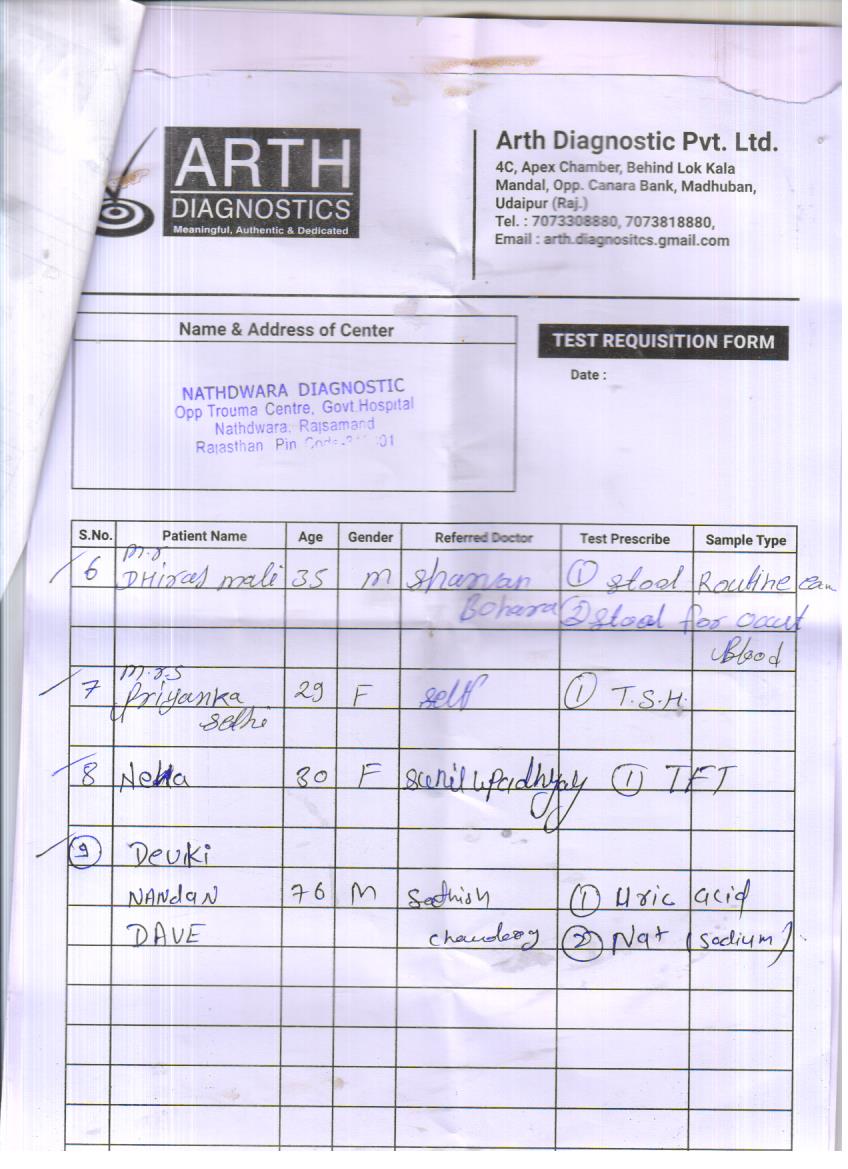 ARTH
DIAGNOSTICS
Meaningful, Authentic & Dedicated
Arth Diagnostic Pvt. Ltd.
4C, Apex Chamber, Behind Lok Kala
Mandal, Opp. Canara Bank, Madhuban,
Udaipur (Raj.)
Tel. : 7073308880, 7073818880,
Email : arth.diagnositcs.gmail.com
Name & Address of Center
TEST REQUISITION FORM
Date :
NATHDWARA DIAGNOSTIC
Opp Trouma Centre, Govt.Hospital
Nathdwara. Rajsamand
Rajasthan Pin
S.No. Patient Name Age Gender Referred Doctor Test Prescribe Sample Type
m.r
6 DHiraj mali 35 m sharwan ① stool Routine Exam
Bohara ② stool for occut
Blood
m.r.s
7 Priyanka 29 F self ① T.S.H.
sethi
8 Neha 30 F sunil upadhyay ① TFT
⑨ Devki
NANdaN 76 M Sathish ① Uric acid
DAVE ② Na+ (sodium)